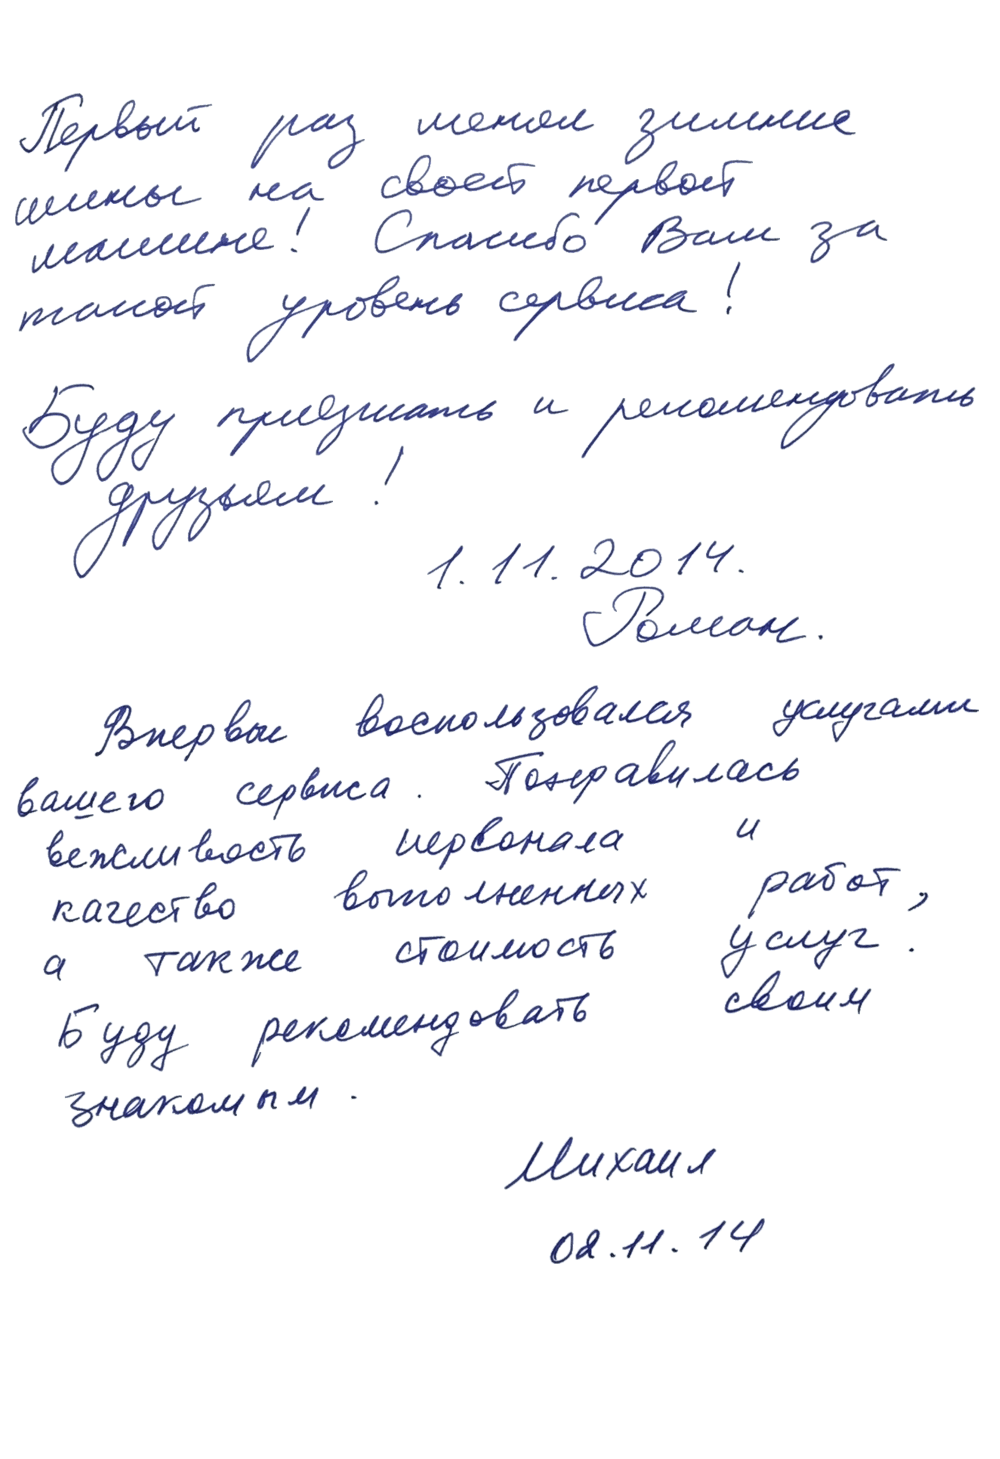 Первый раз менял зимние
шины на своей первой
машине! Спасибо Вам за
такой уровень сервиса!
Буду приезжать и рекомендовать
друзьям!
1.11.2014.
Роман.
Впервые воспользовался услугами
вашего сервиса. Понравилась
вежливость персонала и
качество выполненных работ,
а также стоимость услуг.
Буду рекомендовать своим
знакомым.
Михаил
02.11.14